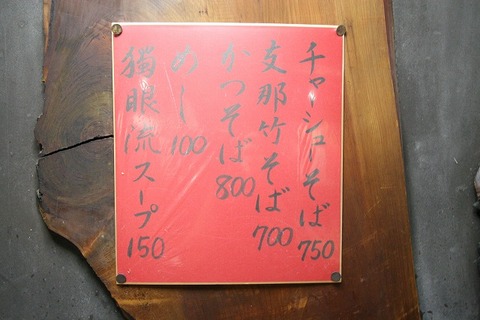 チャーシューそば750
支那竹そば700
かつそば800
めし100
獨眼流スープ150